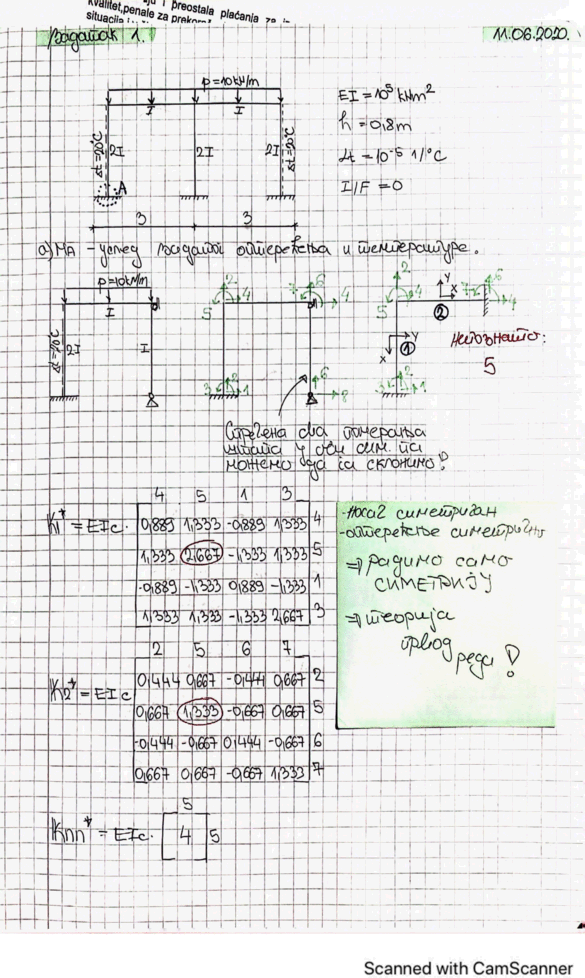 kvalitet, penale za prekor
i preostala plaćanja za iz
situacija
Задатак 1.
11.06.2020.
p=10kN/m
I
I
2I
2I
2I
Δt=20°C
Δt=20°C
A
3
3
EI = 10⁵ kNm²
h = 0,8m
αt = 10⁻⁵ 1/°C
I/F = 0
а) MA - услед задатог оптерећења и температуре.
p=10kN/m
I
2I
I
Δt=20°C
2
4
5
3
2
1
7
6
4
6
8
2
4
5
3
2
1
Y
X
②
7
6
4
Y
X
①
непознато:
5
Спречена два померања
штапа у оси сим. па
можемо да га склонимо!
4 5 1 3
K1* = EIc·
0,889 1,333 -0,889 1,333 4
1,333 2,667 -1,333 1,333 5
-0,889 -1,333 0,889 -1,333 1
1,333 1,333 -1,333 2,667 3
-носач симетричан
-оптерећење симетрично
⇒ радимо само
СИМЕТРИЈУ
⇒ теорија
првог
реда!
2 5 6 7
K2* = EIc
0,444 0,667 -0,444 0,667 2
0,667 1,333 -0,667 0,667 5
-0,444 -0,667 0,444 -0,667 6
0,667 0,667 -0,667 1,333 7
5
Knn* = EIc· 4 5
Scanned with CamScanner